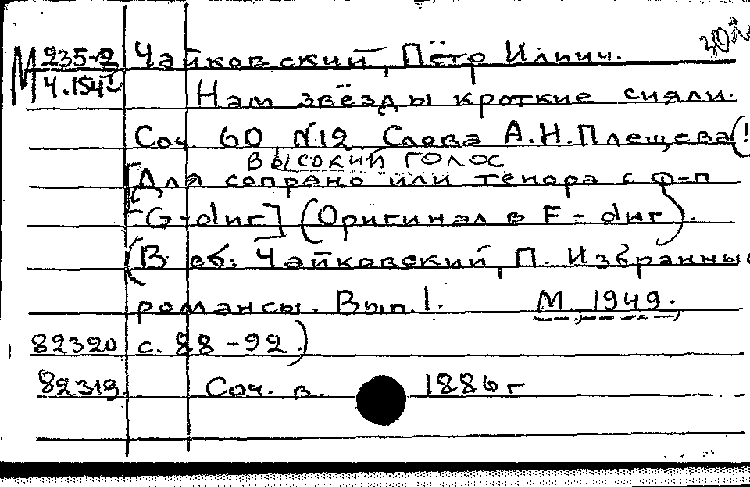 М 235-2 Чайковский, Пётр Ильич.
Ч.154
Нам звёзды кроткие сияли.
Соч. 60 N12 Слова А.Н.Плещева(!
высокий голос
[Для сопрано или тенора с ф-п
G-dur] (Оригинал в F-dur).
(В сб: Чайковский, П. Избранные
романсы. Вып.1. М. 1949.
82320 с. 88-92.)
82319. Соч. в 1886 г